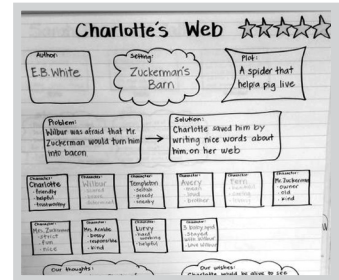 Charlotte's Web
Author:
E.B. White
Setting:
Zuckerman's
Barn
Plot:
A spider that
help a pig live
Problem:
Wilbur was afraid that Mr.
Zuckerman would turn him
into bacon
Solution:
Charlotte saved him by
writing nice words about
him, on her web
Character:
Charlotte
- friendly
- helpful
- trustworthy
Character:
Wilbur
Character:
Templeton
- selfish
- greedy
Character:
Avery
- brother
Character:
Fern
Character:
Mr. Zuckerman
- owner
- old
- kind
Character:
Mrs. Zuckerman
- strict
- fun
- nice
Character:
Mrs. Arable
- responsible
- kind
Character:
Lurvy
- hard
working
- helpful
Character:
stayed
Our thoughts:
Our wishes:
Charlotte would be alive to see